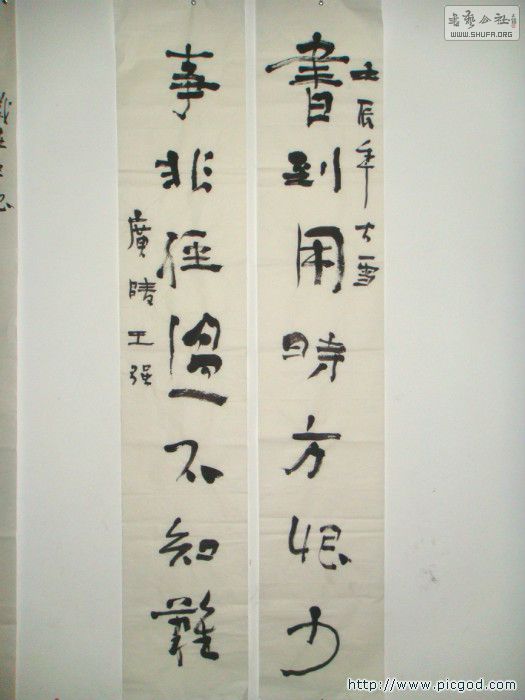 壬辰年大雪
書到用時方恨少
事非經過不知難
廣陵王强
書藝公社
WWW.SHUFA.ORG
http://www.picgod.com